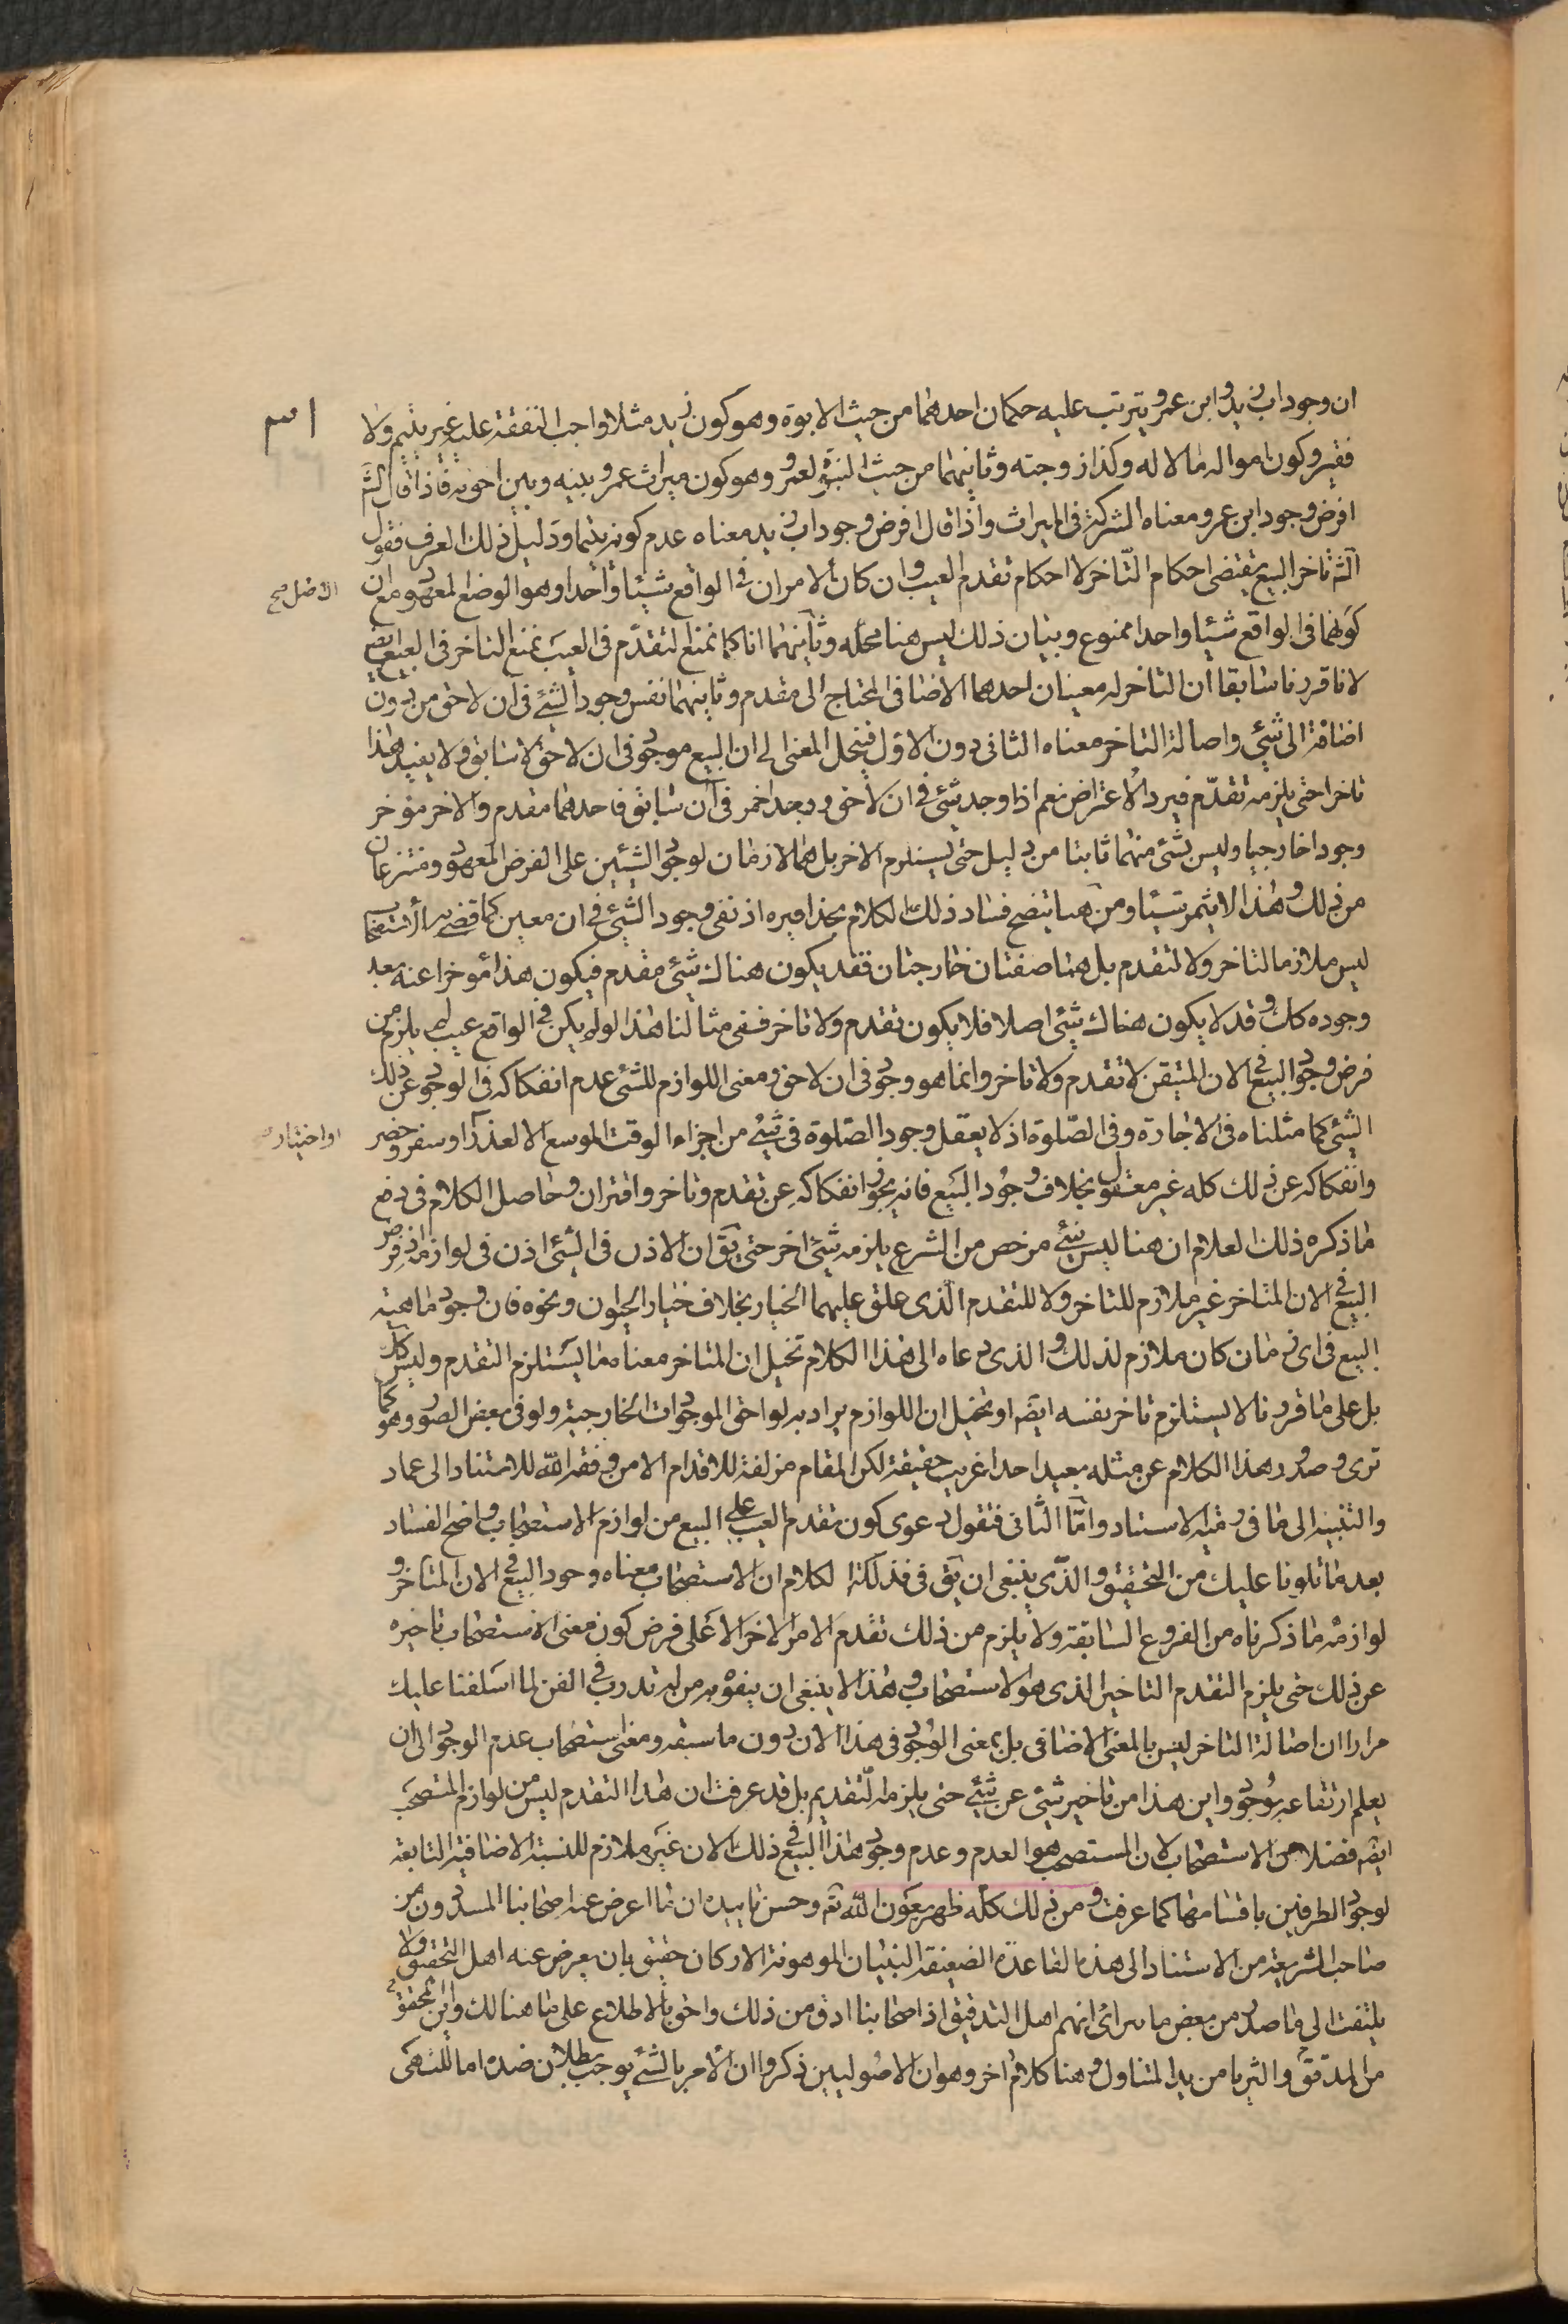 ٣١
ان وجود اب زيد وابن عمرو يترتب عليه حكمان احدهما من حيث الابوة وهو كون زيد مثلا واجب النفقة عليه غير يتيم ولا
فقير وكون امواله مالا له وكذا زوجته وثانيهما من حيث البنوة لعمرو وهو كون ميراث عمرو بينه وبين اخوته فاذا قال الشم
افرض وجود ابن عمرو معناه الشركة في الميراث واذا قال افرض وجود اب زيد معناه عدم كونه يتيما ودليل ذلك العرف فقول
الشم تاخر البيع يقتضى احكام التاخر لا احكام تقدم العيب وان كان الامران في الواقع شيئا واحدا وهو الوضع المعهود مع ان
الاصل صح
كونهما في الواقع شيئا واحدا ممنوع وبيان ذلك ليس هنا محله وثانيهما انا كما نمنع التقدم في العيب نمنع التاخر في البيع ايضا
لانا قررنا سابقا ان التاخر له معنيان احدهما الاضافى المحتاج الى مقدم وثانيهما نفس وجود الشئ في ان لاحق من دون
اضافة الى شئ واصالة التاخر معناه الثانى دون الاول فينحل المعنى الى ان البيع موجود في ان لاحق لا سابق ولا يفيد هذا
تاخرا حتى يلزمه تقدم فيرد الاعتراض نعم اذا وجد شئ في ان لاحق ووجد اخر في ان سابق فاحدهما مقدم والاخر مؤخر
وجودا خارجيا وليس شئ منهما ثابتا من دليل حتى يستلزم الاخر بل هما لازمان لوجود الشيئين على الفرض المعهود ومنتزعان
من ذلك وهذا لا يثمر شيئا ومن هنا يتضح فساد ذلك الكلام بحذافيره اذ نفى وجود الشئ في ان معين كما قضى به الاستصحاب
ليس ملازما لتاخر ولا لتقدم بل هما صفتان خارجتان فقد يكون هناك شئ مقدم فيكون هذا مؤخرا عنه بعد
وجوده كك وقد لا يكون هناك شئ اصلا فلا يكون تقدم ولا تاخر ففى مثالنا هذا لو لم يكن في الواقع عيب لم يلزم من
فرض وجود البيع في الان المتيقن لا تقدم ولا تاخر وانما هو وجود في ان لاحق ومعنى اللوازم للشئ عدم انفكاكه في الوجود عن ذلك
الشئ كما مثلناه في الاجارة وفى الصلوة اذ لا يعقل وجود الصلوة في شئ من اجزاء الوقت الموسع الا لعذر او سفر وحضر
او اختيار صح
وانفكاكه عن ذلك كله غير معقول بخلاف وجود البيع فانه يجوز انفكاكه عن تقدم وتاخر واقتران وحاصل الكلام في دفع
ما ذكره ذلك العلام ان هنا ليس شئ مرخص من الشرع يلزمه شئ اخر حتى يق ان الاذن في الشئ اذن في لوازمه اذ فرض
البيع في الان المتاخر غير ملازم للتاخر ولا للتقدم الذى علق عليهما الخيار بخلاف خيار الحيوان ونحوه فان وجود ماهية
البيع في اى زمان كان ملازم لذلك والذى دعاه الى هذا الكلام تخيل ان المتاخر معناه ما يستلزم التقدم وليس كك
بل على ما قررنا لا يستلزم تاخر نفسه ايضا او تخيل ان اللوازم يراد به لواحق الموجودات الخارجية ولو في بعض الصور وهو كما
ترى وصدور هذا الكلام عن مثله بعيد احدا غريب حقيقة لكن المقام مزلقة للاقدام الا من وفقه الله للاستناد الى عماد
والتنبيه الى ما في الاستناد واما الثانى فنقول دعوى كون تقدم العيب على البيع من لوازم الاستصحاب واضح الفساد
بعد ما تلونا عليك من التحقيق والذى ينبغى ان يق في فذلكة الكلام ان الاستصحاب معناه وجود البيع في الان المتاخر و
لوازمه ما ذكرناه من الفروع السابقة ولا يلزم من ذلك تقدم الامر الاخر الا على فرض كون معنى الاستصحاب تاخيره
عن ذلك حتى يلزم التقدم التاخير الذى هو الاستصحاب وهذا لا ينبغى ان يتفوه به من له تدرب في الفن لما اسلفنا عليك
مرارا ان اصالة التاخر ليس بالمعنى الاضافى بل بمعنى الوجود في هذا الان دون ما سبقه ومعنى استصحاب عدم الوجود الى ان
يعلم ارتفاعه بوجود واين هذا من تاخير شئ عن شئ حتى يلزمه التقديم بل قد عرفت ان هذا التقدم ليس من لوازم المستصحب
ايضا فضلا من الاستصحاب لان المستصحب هو العدم وعدم وجود هذا البيع في ذلك الان غير ملازم للنسبة الاضافية التابعة
لوجود الطرفين باقسامها كما عرفت ومن ذلك كله ظهر بعون الله تم وحسن تاييده ان ما اعرض عنه اصحابنا المسددون من
صاحب الشريعة من الاستناد الى هذه القاعدة الضعيفة البنيان الموهونة الاركان حقيق بان يعرض عنه اهل التحقيق ولا
يلتفت الى ما صدر من بعض ما يرائى انهم اهل التدقيق اذ اصحابنا ادق من ذلك واحق بالاطلاع على ما هنالك واين المحقق
من المدقق والثريا من يد المتناول وهنا كلام اخر وهو ان الاصوليين ذكروا ان الامر بالشئ يوجب بطلان ضده اما للنهى